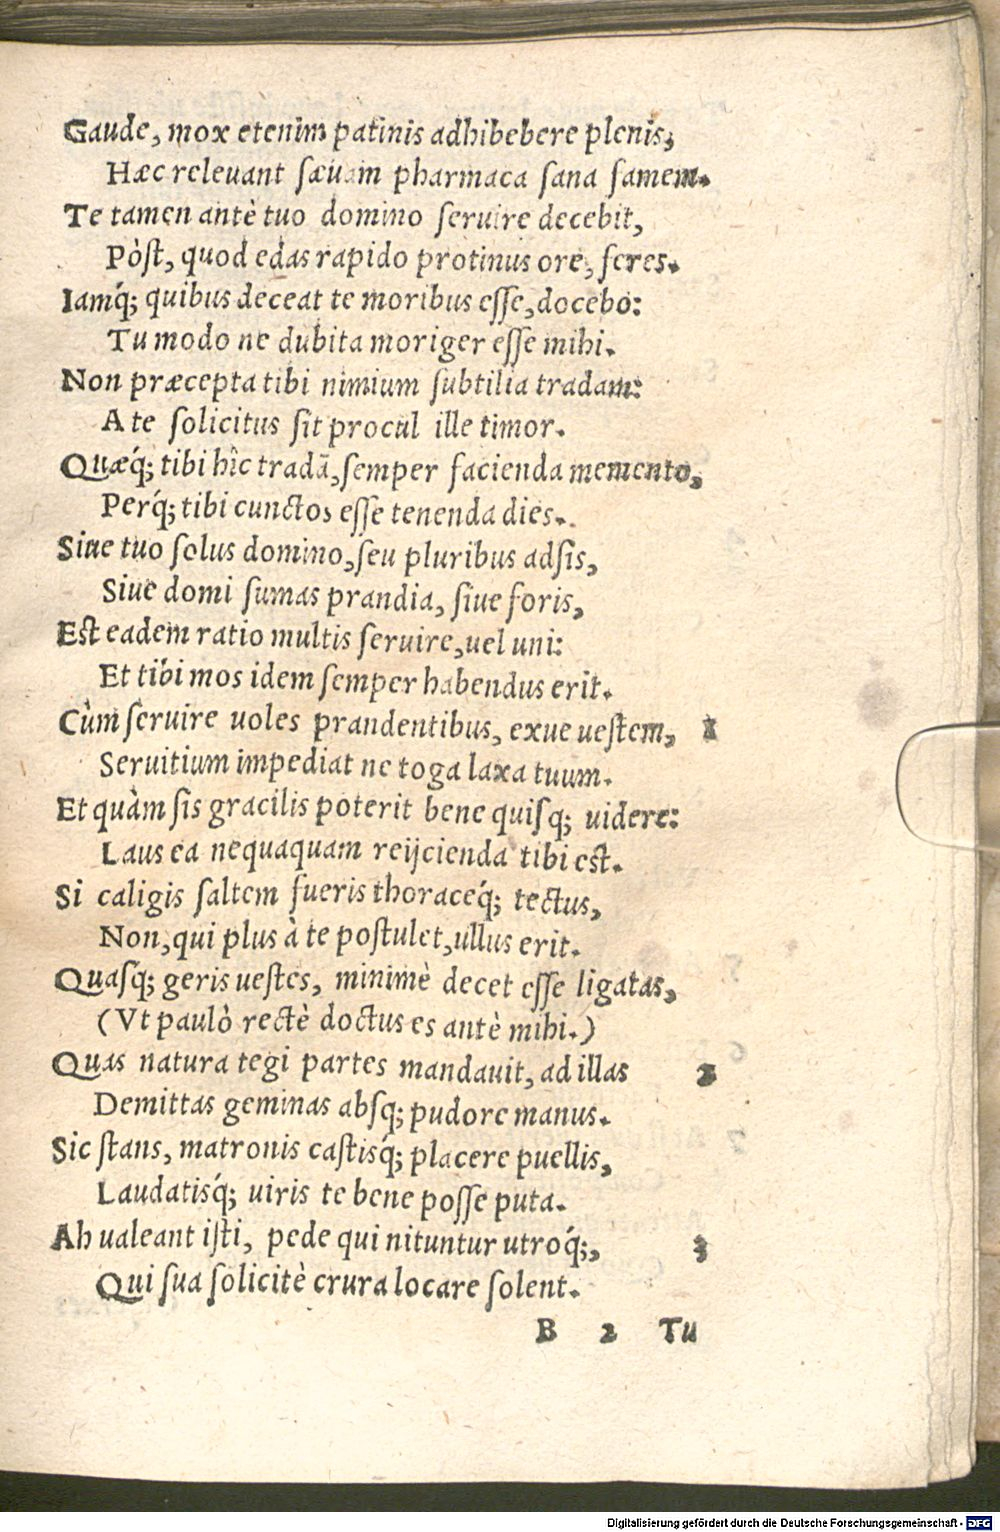 Gaude, mox etenim patinis adhibebere plenis,
Hæc releuant sæuam pharmaca sana famem.
Te tamen antè tuo domino seruire decebit,
Pòst, quod edas rapido protinus ore, feres.
Iamq́; quibus deceat te moribus esse, docebo:
Tu modo ne dubita moriger esse mihi.
Non præcepta tibi nimium subtilia tradam:
A te solicitus sit procul ille timor.
Quæq́; tibi hîc tradā, semper facienda memento,
Perq́; tibi cunctos esse tenenda dies.
Siue tuo solus domino, seu pluribus adsis,
Siue domi sumas prandia, siue foris,
Est eadem ratio multis seruire, uel uni:
Et tibi mos idem semper habendus erit.
Cùm seruire uoles prandentibus, exue uestem, 1
Seruitium impediat ne toga laxa tuum.
Et quàm sis gracilis poterit bene quisq; uidere:
Laus ea nequaquam reijcienda tibi est.
Si caligis saltem fueris thoraceq́; tectus,
Non, qui plus à te postulet, ullus erit.
Quasq; geris uestes, minimè decet esse ligatas,
(Vt paulò rectè doctus es antè mihi.)
Quas natura tegi partes mandauit, ad illas 2
Demittas geminas absq; pudore manus.
Sic stans, matronis castisq́; placere puellis,
Laudatisq́; uiris te bene posse puta.
Ah ualeant isti, pede qui nituntur utroq́;, 3
Qui sua solicitè crura locare solent.
B 2 Tu
Digitalisierung gefördert durch die Deutsche Forschungsgemeinschaft - DFG